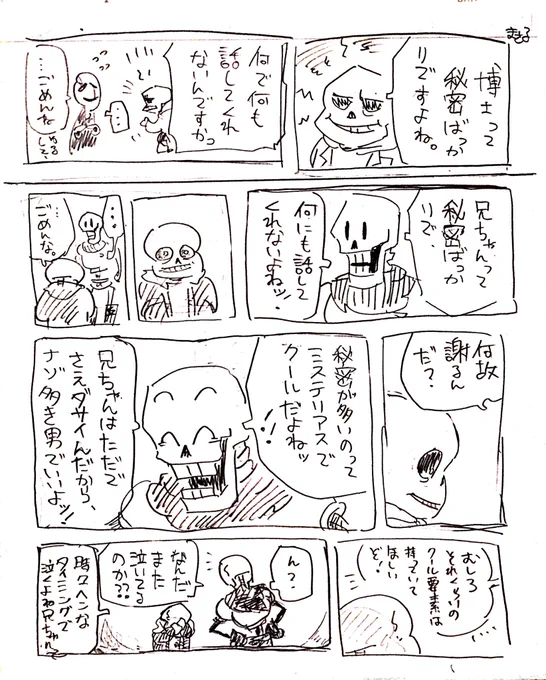 まきる
博士って
秘密ばっか
りですよね。
何で何も
話してくれ
ないんですかっ
…
…ごめんな
兄ちゃんって
秘密ばっか
りで、
何にも話して
くれないよねッ!
…
…ごめんな。
何故
謝るん
だ?
秘密が多いのって
ミステリアスで
クールだよねッ
!!
兄ちゃんはただで
さえダサイんだから、
ナゾ多き男でいいよッ!
むしろ
それくらいの
クール要素は
持っていて
ほしい
ど!
…
ん?
なんだ
また
泣いてる
のか??
時々ヘンな
タイミングで
泣くよね兄ちゃんて